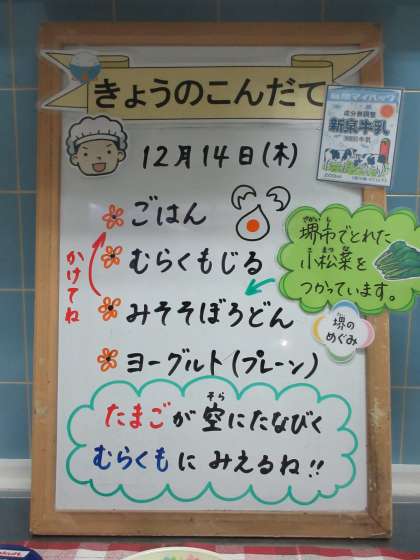 きょうのこんだて
12月14日(木)
ごはん
むらくもじる
みそそぼろどん
ヨーグルト(プレーン)
かけてね
たまごが空にたなびく
そら
むらくもにみえるね!!
マイパック
成分無調整
新泉牛乳
堺市でとれた
さかいし
小松菜を
こまつな
つかっています。
堺の
めぐみ